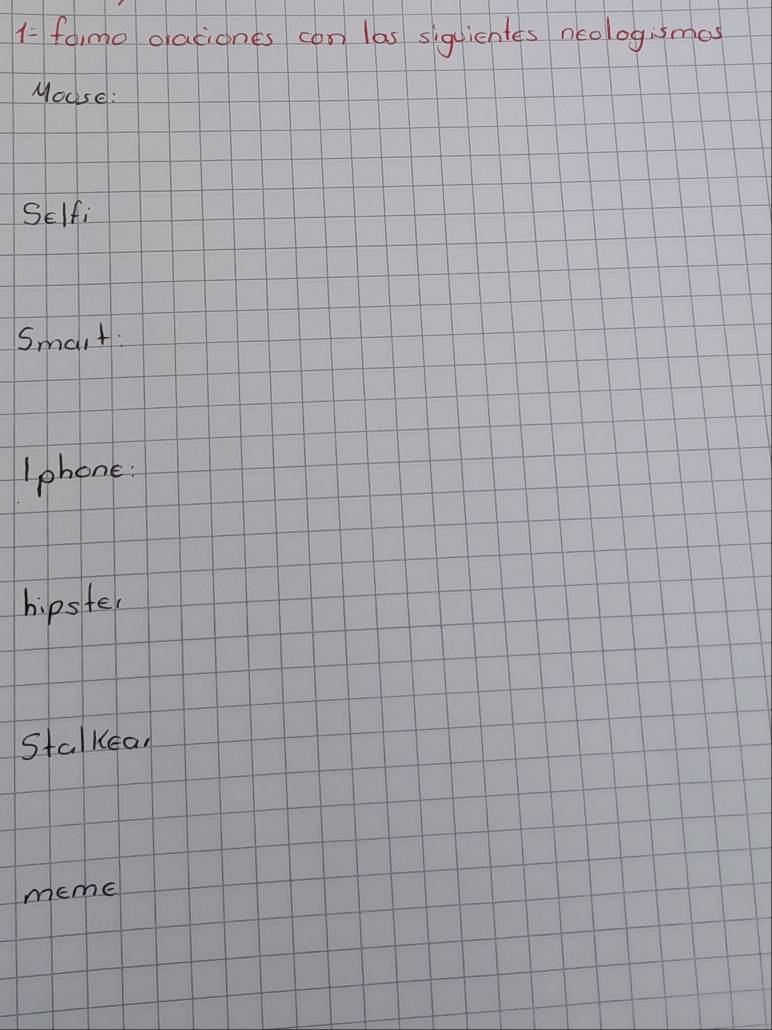 1= formo oraciones con las siguientes neologismos
Mouse:
Selfi
Smart:
Iphone:
hipster
Stalkear
meme